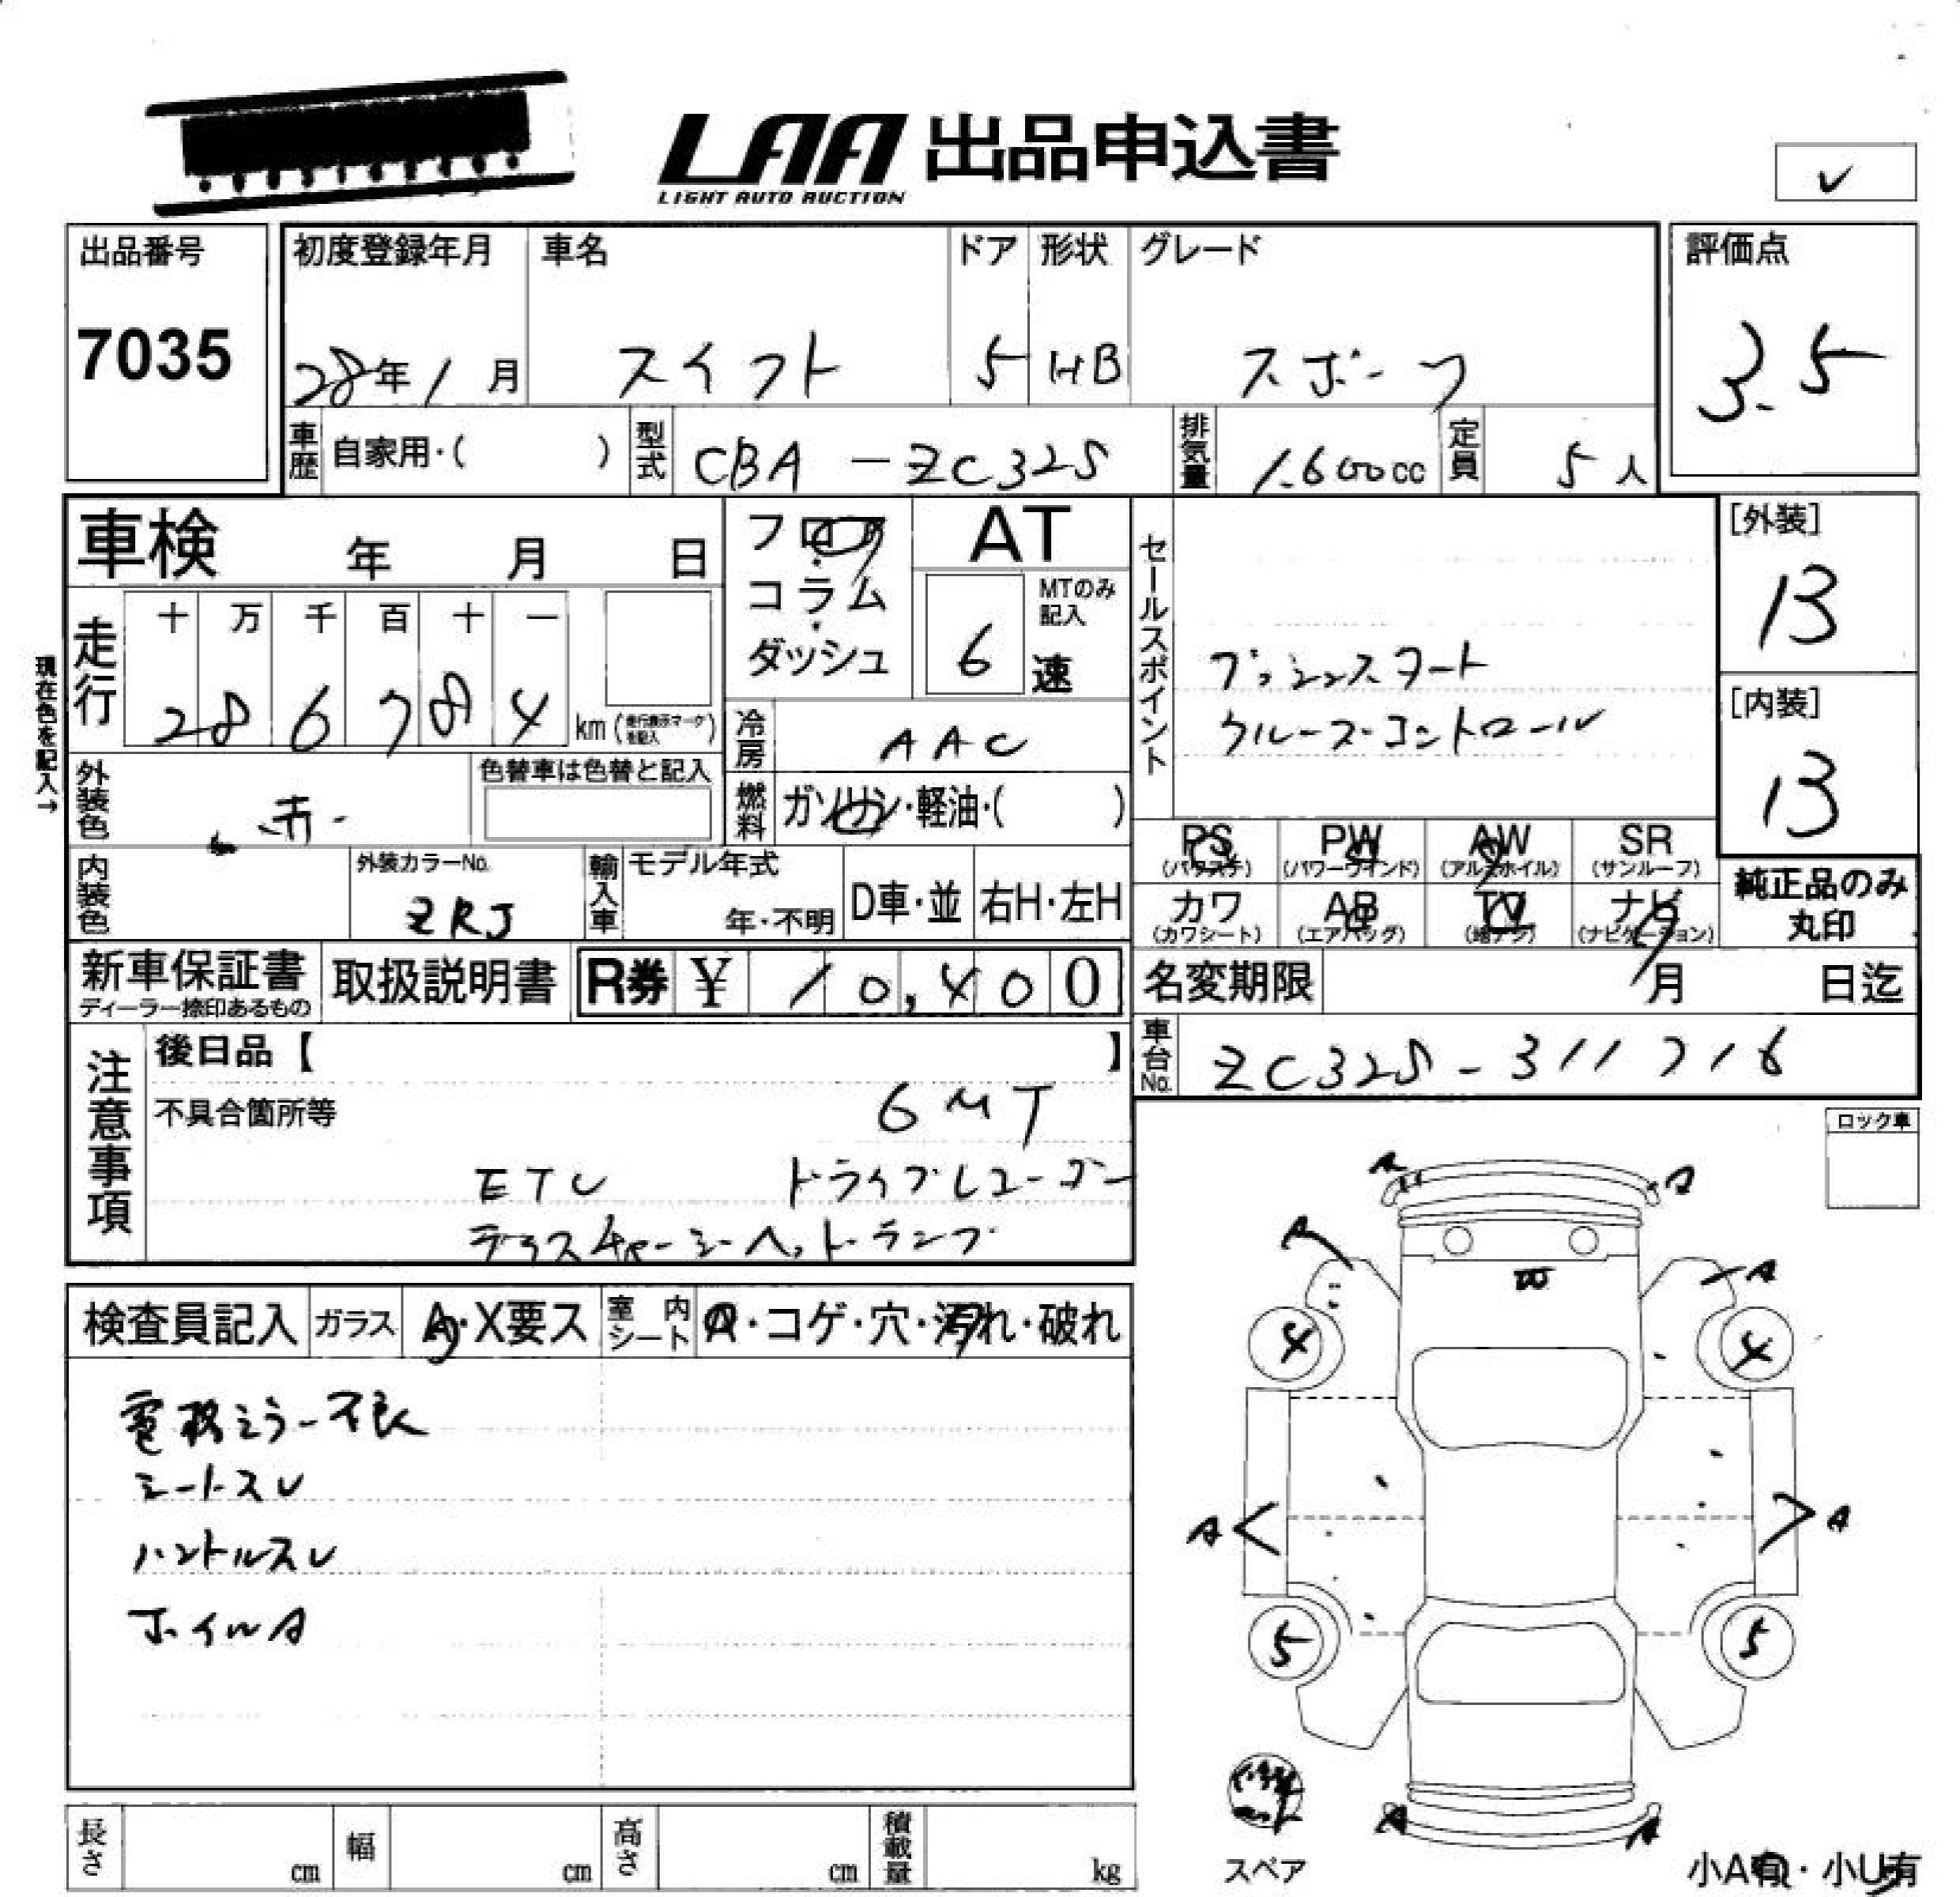 LAA 出品申込書
LIGHT AUTO AUCTION
✓
出品番号 初度登録年月 車名 ドア 形状 グレード 評価点
7035 28年1月 スイフト 5 HB スポーツ 3.5
車歴 自家用・( ) 型式 CBA-ZC32S 排気量 1.600cc 定員 5人
車検 年 月 日
フロア・コラム・ダッシュ
AT
MTのみ記入
6速
セールスポイント
プッシュスタート
クルーズコントロール
[外装]
13
[内装]
13
現在色を記入→
走行 十 万 千 百 十 一
286784 km (走行表示マークを記入)
冷房 AAC
外装色 赤
色替車は色替と記入
燃料 ガソリン・軽油・( )
PS PW AW SR
(パワステ) (パワーウインド) (アルミホイル) (サンルーフ)
カワ AB TV ナビ
(カワシート) (エアバッグ) (地デジ) (ナビゲーション)
純正品のみ
丸印
内装色 外装カラーNo. ZRJ
輸入車 モデル年式 年・不明 D車・並 右H・左H
新車保証書 取扱説明書 R券 ¥ 10,400
ディーラー捺印あるもの
名変期限 月 日迄
車台No. ZC32S-311716
注意事項
後日品【 】
不具合箇所等 6MT
ETC ドライブレコーダー
ディスチャージヘッドランプ
ロック車
検査員記入 ガラス A・X要ス 室内シート ・コゲ・穴・汚れ・破れ
電格ミラー不良
シートスレ
ハンドルスレ
ホイルA
A
A A
4 4
A A
5 5
A A
スペア
小A有・小U有
長さ cm 幅 cm 高さ cm 積載量 kg